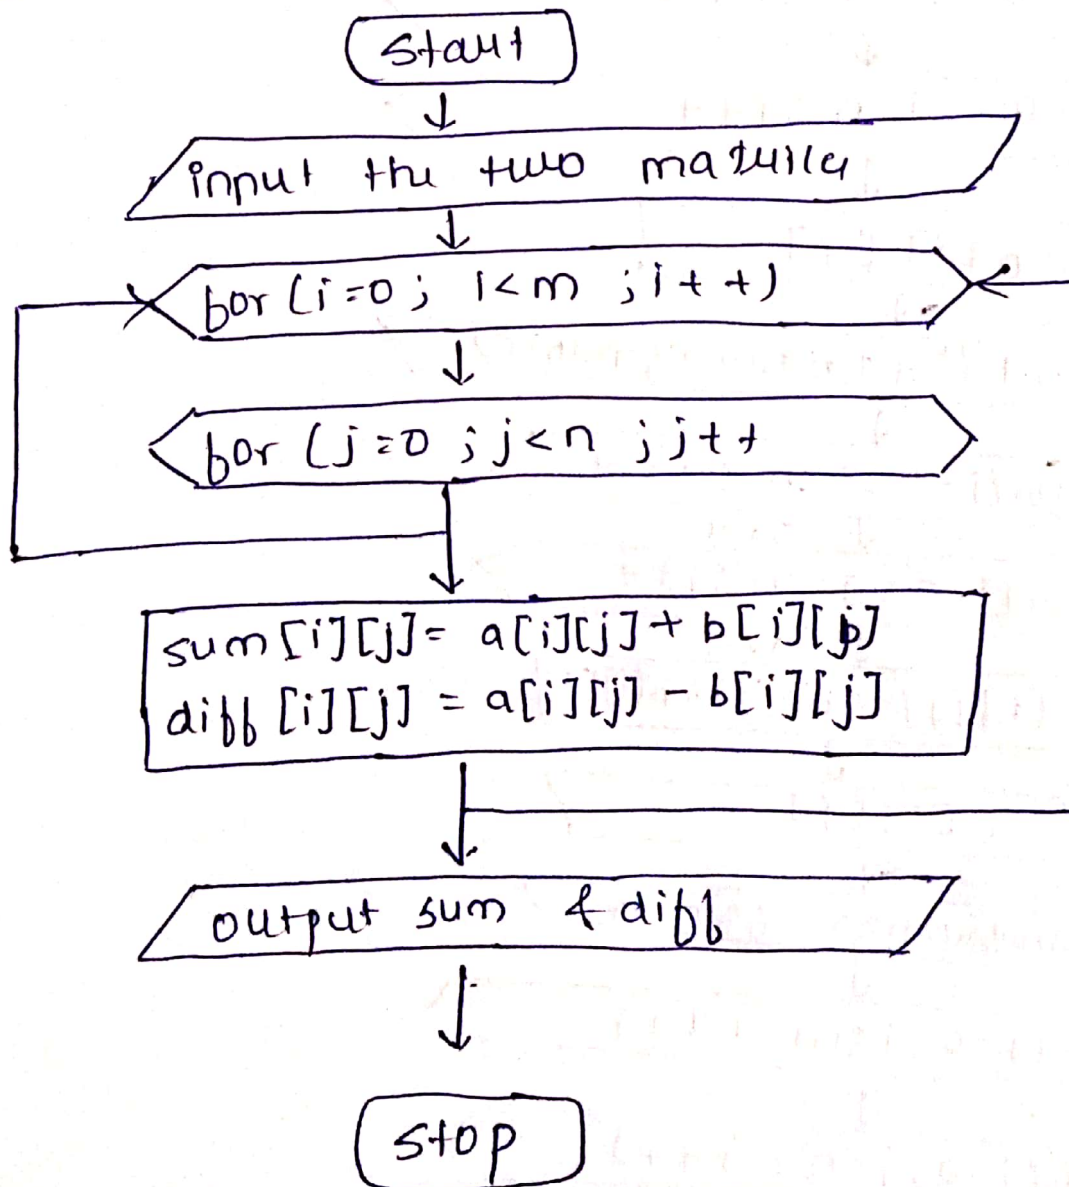 Start
input the two matrices
for (i=0; i<m ; i++)
for (j=0 ; j<n ; j++
sum[i][j]= a[i][j]+b[i][j]
diff[i][j] = a[i][j] - b[i][j]
output sum & diff
Stop